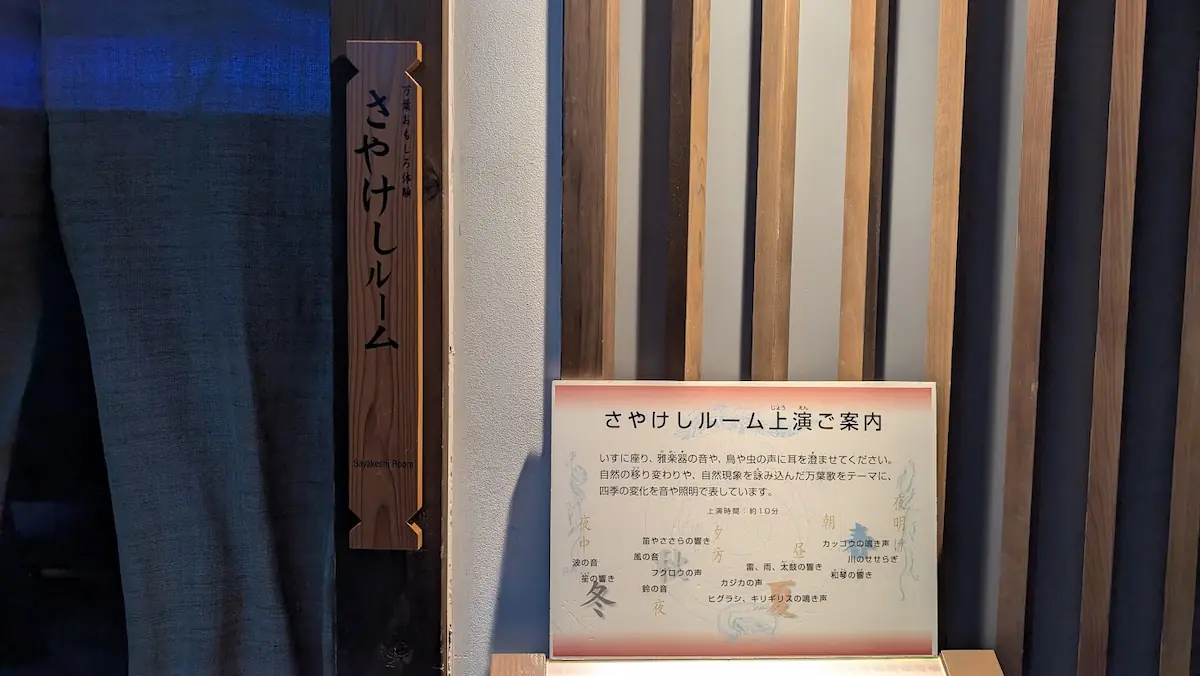 万葉おもしろ体験
さやけしルーム
Sayakeshi Room
さやけしルーム上演ご案内
じょう えん
いすに座り、雅楽器の音や、鳥や虫の声に耳を澄ませてください。
自然の移り変わりや、自然現象を詠み込んだ万葉歌をテーマに、
四季の変化を音や照明で表しています。
上演時間：約10分
夜明け
朝
春
カッコウの鳴き声
川のせせらぎ
和琴の響き
昼
雷、雨、太鼓の響き
カジカの声
夏
ヒグラシ、キリギリスの鳴き声
夕方
笛やささらの響き
風の音
秋
フクロウの声
鈴の音
夜
夜中
波の音
笙の響き
冬